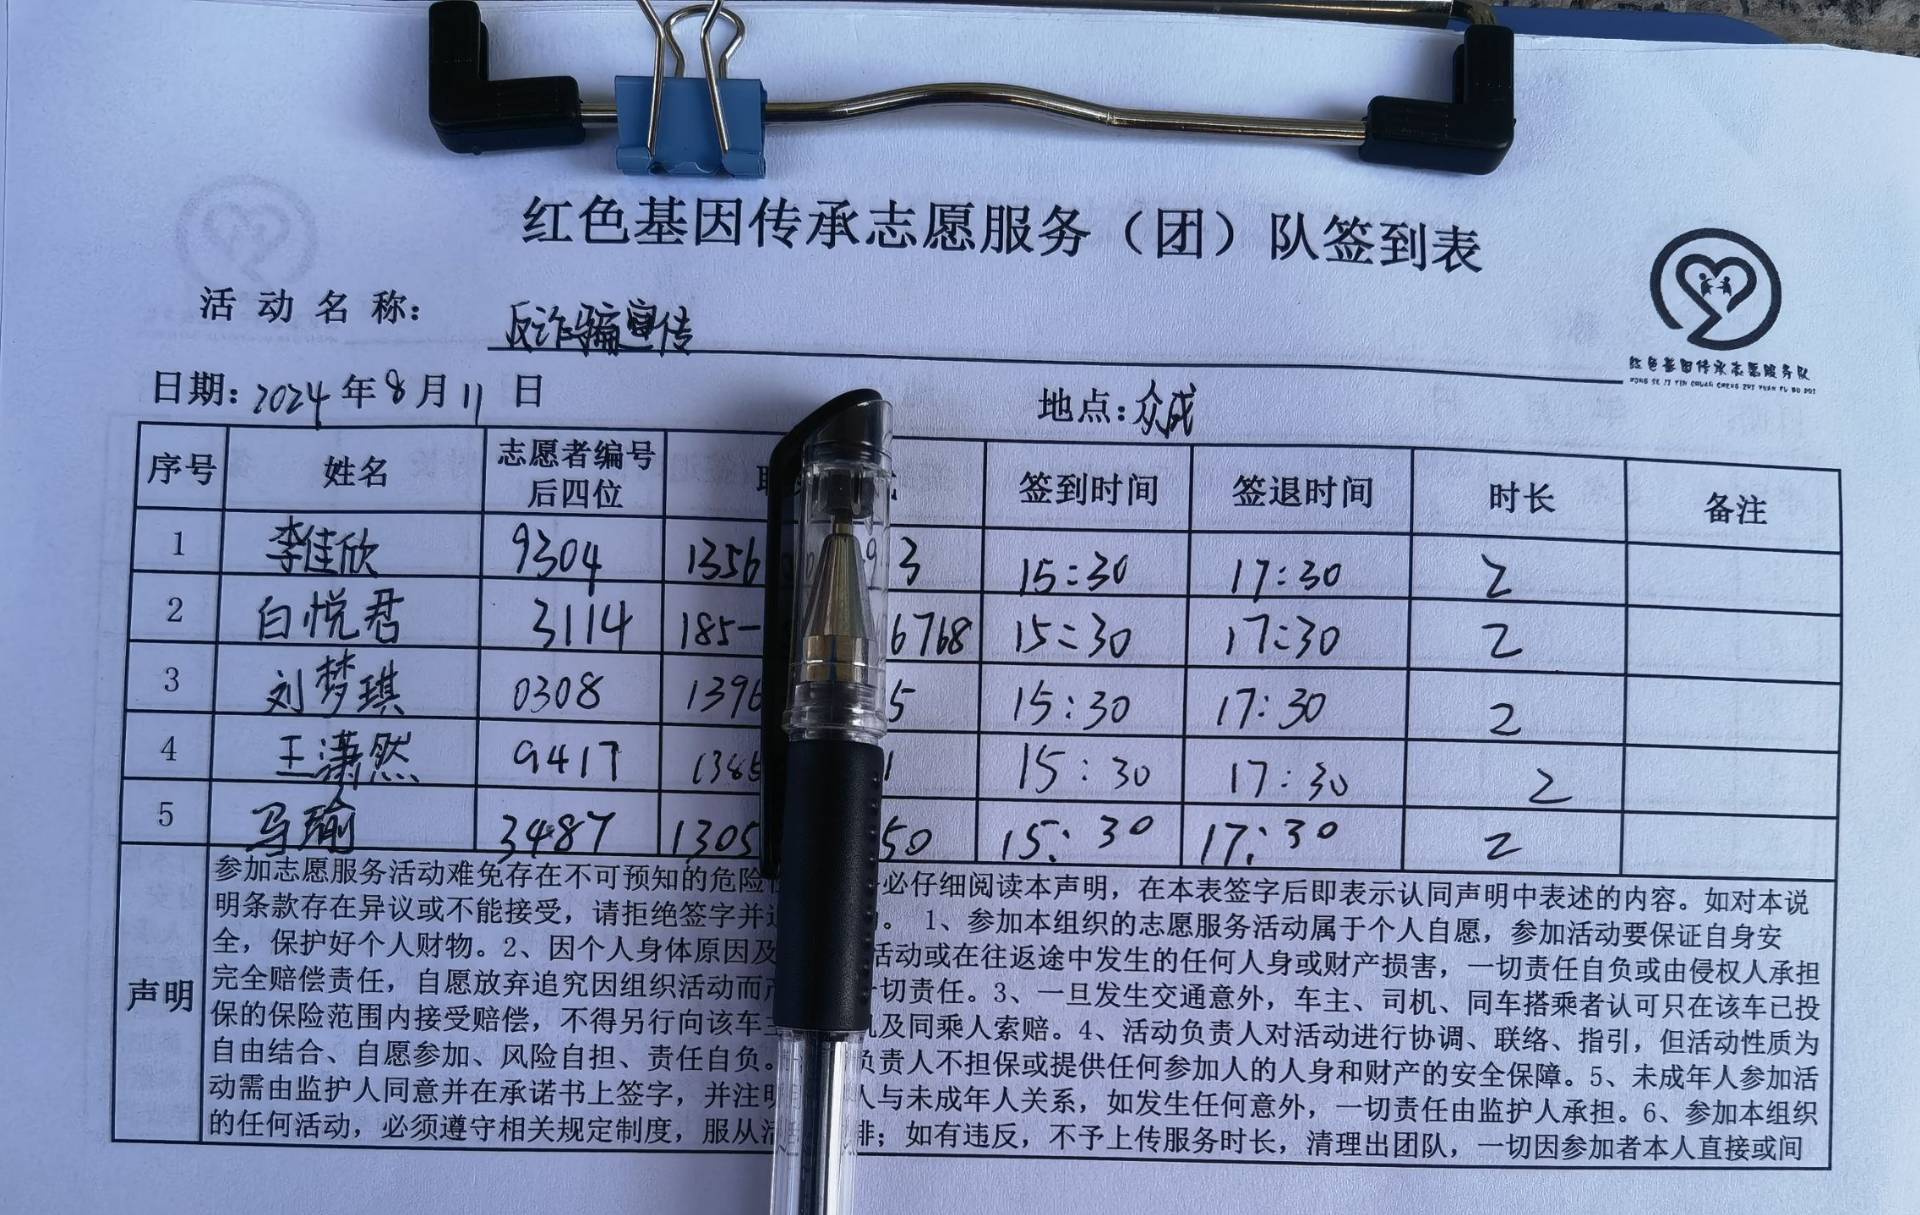 红色基因传承志愿服务（团）队签到表
红色基因传承志愿服务队
HONG SE JI YIN CHUAN CHENG ZHI YUAN FU WU DUI
活动名称：反诈骗宣传
日期：2024年8月11日 地点：众成
序号 姓名 志愿者编号后四位 签到时间 签退时间 时长 备注
1 李佳欣 9304 1356 9 3 15:30 17:30 2
2 白悦君 3114 185- 6768 15:30 17:30 2
3 刘梦琪 0308 1396 5 15:30 17:30 2
4 王潇然 9417 1385 1 15:30 17:30 2
5 马瑜 3487 1305 50 15:30 17:30 2
声明
参加志愿服务活动难免存在不可预知的危险 必仔细阅读本声明，在本表签字后即表示认同声明中表述的内容。如对本说
明条款存在异议或不能接受，请拒绝签字并 。 1、参加本组织的志愿服务活动属于个人自愿，参加活动要保证自身安
全，保护好个人财物。2、因个人身体原因及 活动或在往返途中发生的任何人身或财产损害，一切责任自负或由侵权人承担
完全赔偿责任，自愿放弃追究因组织活动而 一切责任。3、一旦发生交通意外，车主、司机、同车搭乘者认可只在该车已投
保的保险范围内接受赔偿，不得另行向该车 及同乘人索赔。4、活动负责人对活动进行协调、联络、指引，但活动性质为
自由结合、自愿参加、风险自担、责任自负。 负责人不担保或提供任何参加人的人身和财产的安全保障。5、未成年人参加活
动需由监护人同意并在承诺书上签字，并注 人与未成年人关系，如发生任何意外，一切责任由监护人承担。6、参加本组织
的任何活动，必须遵守相关规定制度，服从 排；如有违反，不予上传服务时长，清理出团队，一切因参加者本人直接或间